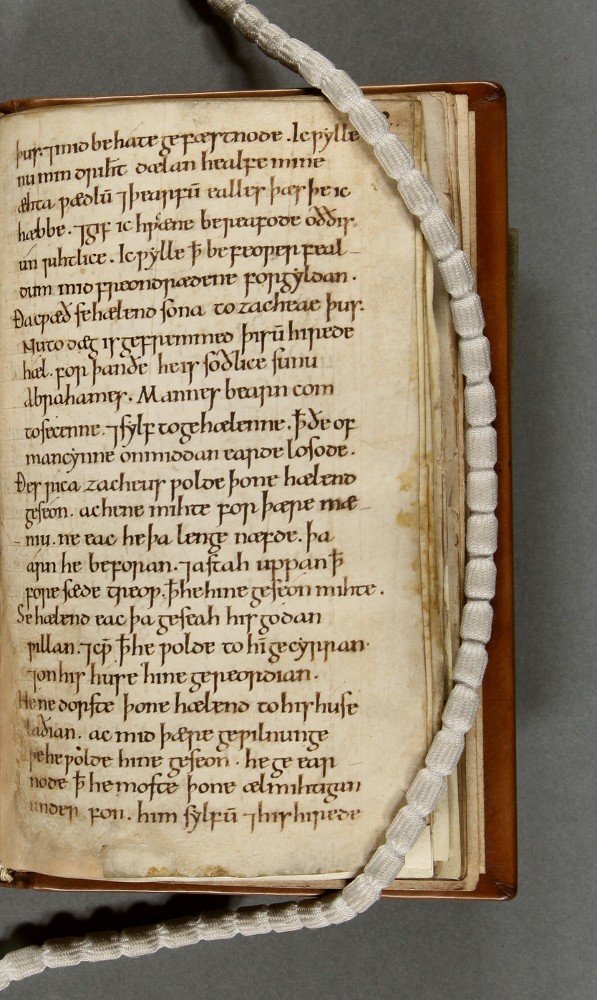 þus. ⁊ mid behate gefæstnode. Ic ƿylle
nu min driht̄ dælan healfe mine
æhta ƿædlū ⁊ þearfū ealles þæs þe ic
hæbbe. ⁊ gif ic hƿæne bereafode oððir
un rihtlice. Ic ƿylle ꝥ be feoƿer feal
dum mid freondrædene forgyldan.
Ða cƿæð se hælend sona to zacheae þus.
Nu to dæg is gefremmed þisū hirede
hæl. for þan ðe he is soðlice sunu
abrahames. Mannes bearn com
to secenne. ⁊ sylf to gehælenne. ꝥ ðe of
mancynne on middan earde losode.
Ðes rica zacheus ƿolde þone hælend
geseon. ac he ne mihte for þære mæ
niu. ne eac he þa lenge næfde. þa
arn he beforan. ⁊ astah uppan ꝥ
fore sæde treoƿ. ꝥ he hine geseon mihte.
Se hælend eac þa geseah his godan
ƿillan. ⁊ cƿ̄ ꝥ he ƿolde to hī gecyrran
⁊ on his huse hine gereordian.
He ne dorste þone hælend to his huse
laðian. ac mid þære geƿilnunge
þe he ƿolde hine geseon. he ge ear
node ꝥ he moste þone ælmihtigan
under fon. him sylfū ⁊ his hirede